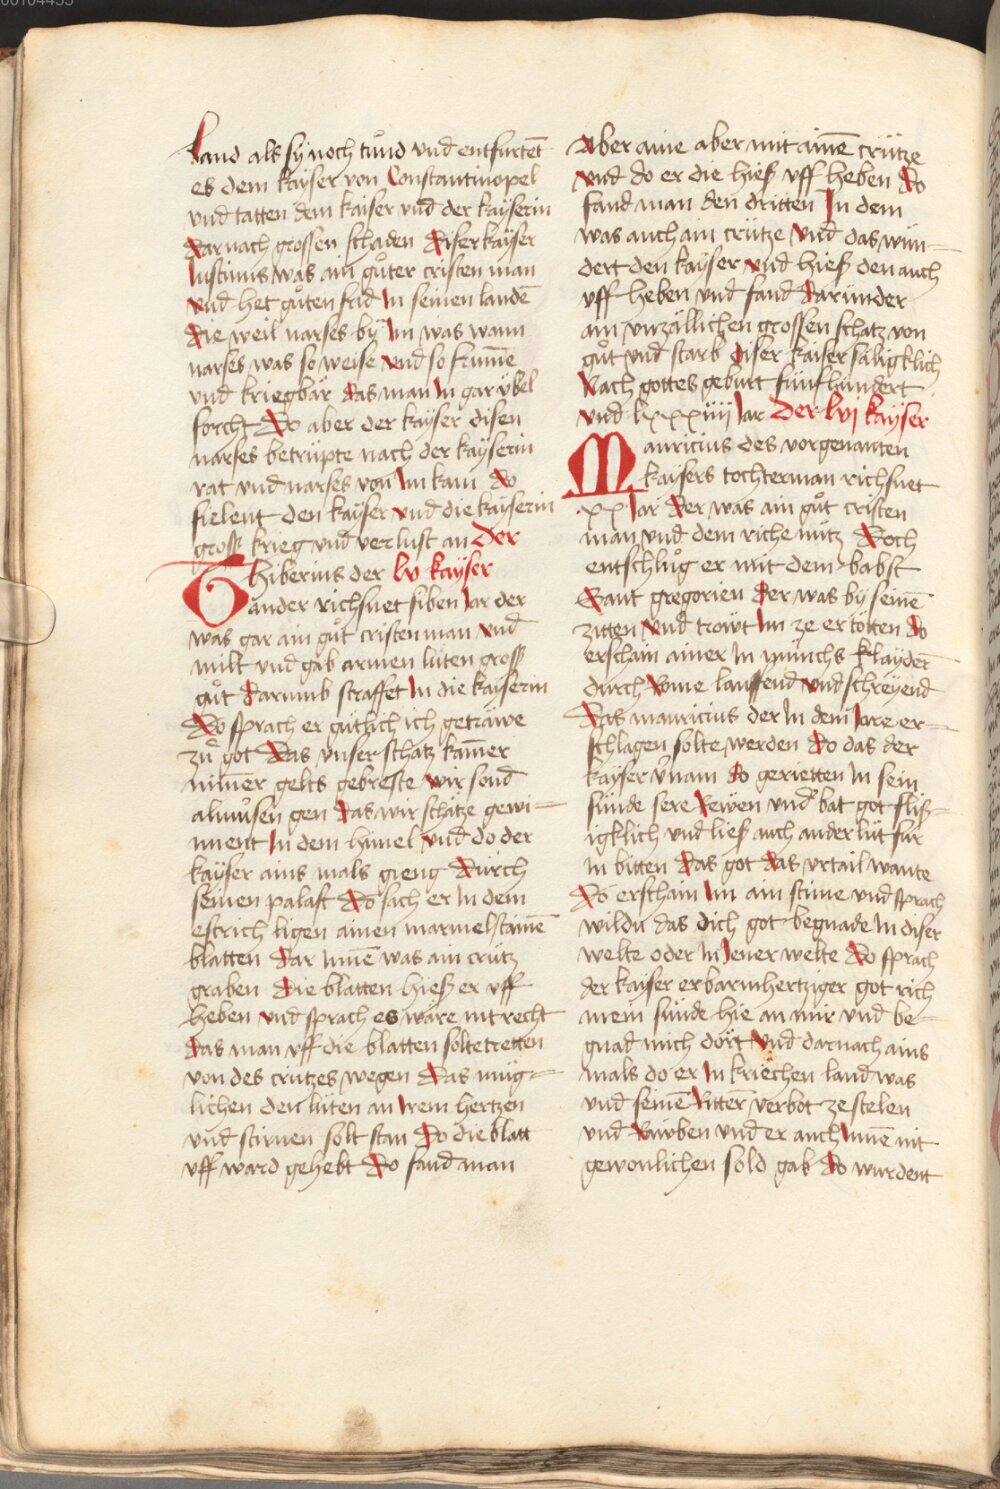 land als sÿ noch tuͦnd vnd entfurtent̄
es dem kaÿser von Constantinopel
vnd tatten dem kaiser vnd der kaÿserin
dar nach grossen schaden diser kaÿser
Iustinus was ain guͦter cristen man
vnd het guͦten frid in seinen landē
die weil narses bÿ Im was wann
narses was so weise vnd so frum̄e
vnd kriegbär das man In gar übel
forcht Do aber der kaÿser disen
narses betrüpte nach der kaÿserin
rat vnd narses von Im kam do
fielent den kaÿser vnd die kaÿserin
gross krieg vnd verlust an Der
Thiberius der lv kaÿser
ander richsnet siben Iar der
was gar ain guͦt cristen man vnd
milt vnd gab armen lüten gross
guͦt darumb straffet In die kaÿserin
Do sprach er gütlich ich geträwe
zuͦ got das vnser schatz kam̄er
nim̄er gelts gebreste wir send
almuͦsen gen das wir schätze gewi=
nnent In dem himel vnd do der
kaÿser ains mals gieng durch
seinen palast Do sach er In dem
estrich ligen ainen marmelstainē
blatten dar Inn̄e was ain crütz
graben die blatten hiess er vff
heben vnd sprach es wäre nit recht
das man vff die blatten solte tretten
von des crützes wegen das müg=
lichen den lüten an Irem hertzen
vnd stirnen solt stan Do die blatt
vff ward gehebt Do fand man
Aber aine aber mit ainē crütze
vnd do er die hiess vff heben Do
fand man den dritten In dem
was auch ain crütze vnd das wun=
dert den kaÿser vnd hiess den auch
vff heben vnd fand darunder
ain vnzällichen grossen schatz von
guͦt vnd starb diser kaiser säligklich
Nach gottes geburt fünfhundert
vnd lxxxiiij Iar Der lvj kaÿser
Mauricius des vorgenanten
kaÿsers tochterman richsnet
xx Iar der was ain guͦt cristen
man vnd dem riche nütz Doch
entschluͦg er mit dem babst
Sant gregorien der was bÿ seinē
zitten vnd trowt Im ze ertötten do
erschain ainer In münchs klaÿdern̄
durch Rome lauffend vnd schreÿend
Das mauricius der In dem Iare er=
schlagen solte werden Do das der
kaÿser v̾nam do gerietten In sein
sünde sere Rewen vnd bat got fliss=
igklich vnd liess auch ander lüt für
In bitten das got das vrtail wante
Do erschain Im ain stime vnd sprach
wildu das dich got begnade In diser
welte oder In Iener welte Do sprach
der kaÿser erbarmhertziger got rich
mein sünde hie an mir vnd be=
gnad mich dort vnd darnach ains
mals do er In kriechen land was
vnd seinē Rittern̄ verbot ze stelen
vnd Rawben vnd er auch Inn̄e nit
gewonlichen sold gab do wurdent